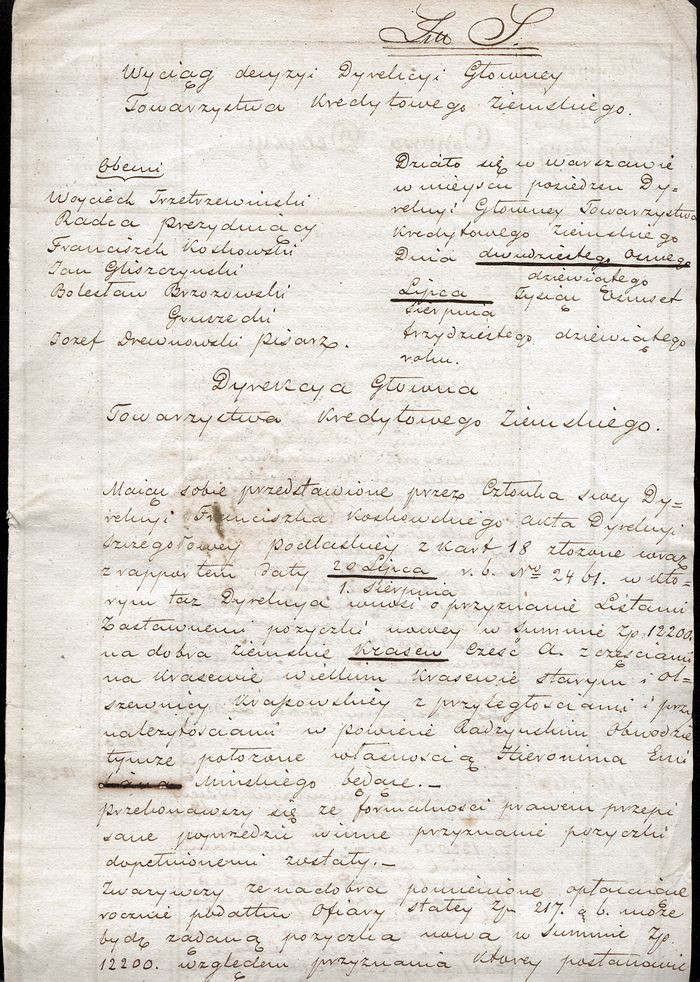 Litt S.
Wyciąg decyzyi Dyrekcyi Głowney
Towarzystwa Kredytowego Ziemskiego.
Obecni
Woyciech Trzetrzewinski
Radca prezyduiący
Franciszek Koskowski
Jan Gliszczynski
Bolesław Brzozowski
Gruszecki
Jozef Drewnowski Pisarz.
Działo się w warszawie
w mieyscu posiedzen Dy-
rekcyi Głowney Towarzystwa
Kredytowego Ziemskiego
Dnia dwudziestego osmego
dziewiątego
Lipca Tysiąc osmset
Sierpnia
trzydziestego dziewiątego
roku.
Dyrekcya Głowna
Towarzystwa Kredytowego Ziemskiego.
Maiąc sobie przedstawione przez Członka swey Dy-
rekcyi Franciszka Koskowskiego akta Dyrekcyi
Szczegołowey podlaskiey z kart 18 złożone wraz
z rapportem daty 20 Lipca r. b. No 2461. w kto-
1. Sierpnia
rym taz Dyrekcya wnosi o przyznanie Listami
Zastawnemi pożyczki nowey w summie Zp. 12200.
na dobra ziemskie Krasew Część A. z częściami
na Krasewie wielkim Krasewie starym i Ol-
szewnicy Krapowskiey z przyległościami i przy
należytościami w powiecie Radzynskim Obwodzie
tymże położone własnością Hieronima Emi
Minskiego będące. –
przekonawszy się że formalności prawem przepi
sane poprzedzić winne przyznanie pożyczki
dopełnionemi zostały. –
Zważywszy że na dobra pomienione opłacaiące
rocznie podatku Ofiary stałey Zp 217. g 6. może
bydź zadaną pożyczka nowa w Summie Zp.
12200. względem przyznania ktorey postanowie